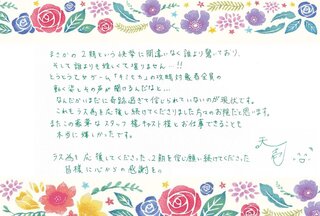 まさかの2期という快挙に間違いなく誰より驚いており、
そして誰よりも嬉しくて堪りません…!!
とうとう乙女ゲーム『まじこい』の攻略対象者全員の
動く姿とその声が聞けるんだなと…
なんだかいまだに奇跡過ぎて信じられていないのが現状です。
これもラス為を応援し続けてくださいました方々のお陰だと思います。
またこの最高なスタッフ様、キャスト様とお仕事できることも
本当に嬉しかったです。
ラス為を応援してくださった、2期を信じ願い続けてくださった
皆様に心からの感謝を